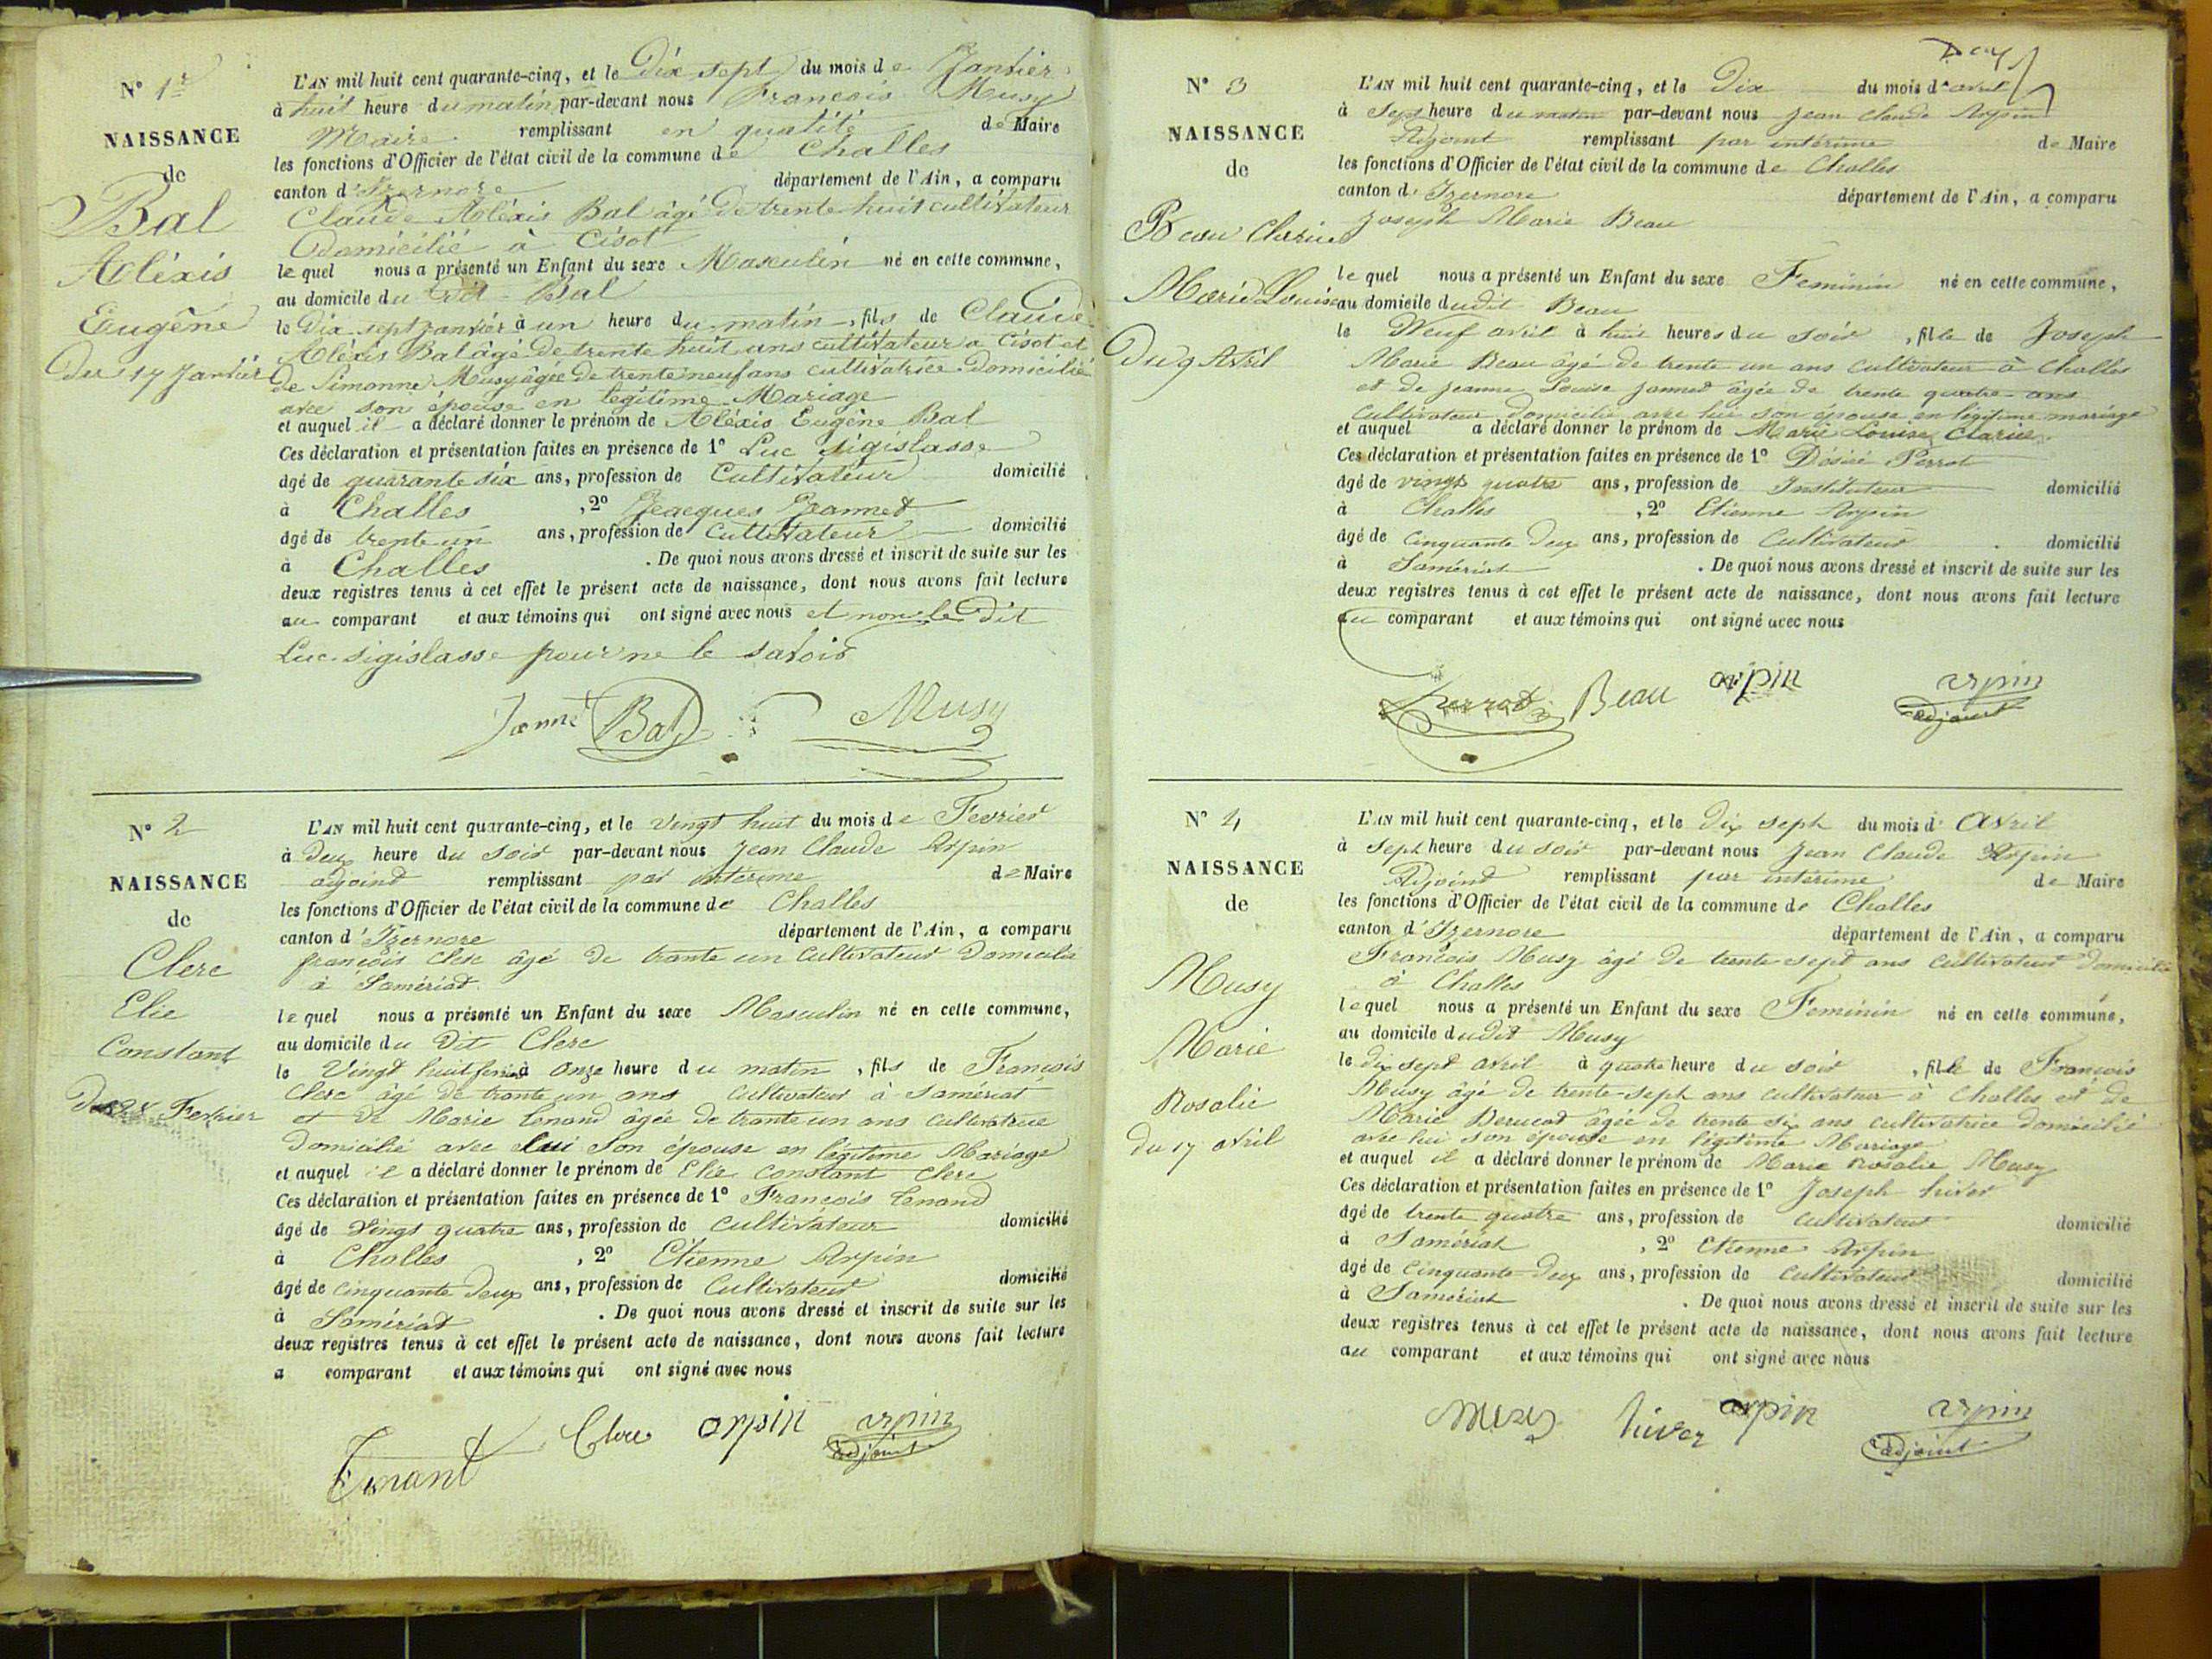 N° 1r
NAISSANCE
de
Bal
Aléxis
Eugêne
du 17 Janvier
L'AN mil huit cent quarante-cinq, et le Dix sept du mois de Janvier
à huit heure du matin par-devant nous Francois Musy
Maire remplissant en qualité de Maire
les fonctions d'Officier de l'état civil de la commune de Challes
canton d'Izernore département de l'Ain, a comparu
Claude Aléxis Bal âgé de trente huit cultivateur
Domicilié à Cisot
lequel nous a présenté un Enfant du sexe Masculin né en cette commune,
au domicile du dit Bal
le Dix sept janvier à un heure du matin, fils de Claude
Aléxis Bal âgé de trente huit ans cultivateur a Cisot et
de Simonne Musy âgée de trente neuf ans cultivatrice Domicilié
avec son épouse en legitime Mariage
et auquel il a déclaré donner le prénom de Aléxis Eugêne Bal
Ces déclaration et présentation faites en présence de 1° Luc Sigislasse
âgé de quarante six ans, profession de Cultivateur domicilié
à Challes, 2° Jeacques Joannet
âgé de trente un ans, profession de Cultivateur domicilié
à Challes. De quoi nous avons dressé et inscrit de suite sur les
deux registres tenus à cet effet le présent acte de naissance, dont nous avons fait lecture
au comparant et aux témoins qui ont signé avec nous et non le Dit
Luc Sigislasse pour ne le savoir
Janné Bal Musy
N° 2
NAISSANCE
de
Clerc
Elie
Constant
du 28 Fevrier
L'AN mil huit cent quarante-cinq, et le Vingt huit du mois de Fevrier
à Deux heure du soir par-devant nous Jean Claude Arpin
adjoind remplissant par interime de Maire
les fonctions d'Officier de l'état civil de la commune de Challes
canton d'Izernore département de l'Ain, a comparu
françois Clerc âgé de trante un Cultivateur Domicilie
à Samériat
lequel nous a présenté un Enfant du sexe Masculin né en cette commune,
au domicile du Dit Clerc
le Vingt huit à onze heure du matin, fils de François
Clerc âgé de trante un ans Cultivateur à Samériat
et de Marie Tenand âgée de trante un ans cultivatrice
Domicilié avec lui son épouse en légitime Mariage
et auquel il a déclaré donner le prénom de Elie Constant Clerc
Ces déclaration et présentation faites en présence de 1° François Tenand
âgé de Vingt quatre ans, profession de Cultivateur domicilié
à Challes, 2° Etienne Arpin
âgé de Cinquante Deux ans, profession de Cultivateur domicilié
à Samériat. De quoi nous avons dressé et inscrit de suite sur les
deux registres tenus à cet effet le présent acte de naissance, dont nous avons fait lecture
a comparant et aux témoins qui ont signé avec nous
Tenant Clerc arpin arpin
adjoint
N° 3
NAISSANCE
de
Beau Clarice
Marie Louise
Du 9 Avril
L'AN mil huit cent quarante-cinq, et le Dix du mois d'avril
à Sept heure du matin par-devant nous Jean Claude Arpin
Adjoint remplissant par intérime de Maire
les fonctions d'Officier de l'état civil de la commune de Challes
canton d'Izernore département de l'Ain, a comparu
Joseph Marie Beau
lequel nous a présenté un Enfant du sexe Feminin né en cette commune,
au domicile dudit Beau
le Neuf avril à huit heures du soir, fille de Joseph
Marie Beau âgé de trente un ans Cultivateur à Challes
et de Jeanne Louise Jannet âgée de trente quatre ans
Cultivateur domicilie avec lui son épouse en légitime mariage
et auquel a déclaré donner le prénom de Marie Louise Clarice
Ces déclaration et présentation faites en présence de 1° Désiré Perrot
âgé de vingt quatre ans, profession de Instituteur domicilié
à Challes, 2° Etienne Arpin
âgé de Cinquante Deux ans, profession de Cultivateur domicilié
à Samériat. De quoi nous avons dressé et inscrit de suite sur les
deux registres tenus à cet effet le présent acte de naissance, dont nous avons fait lecture
au comparant et aux témoins qui ont signé avec nous
Perrot Beau arpin arpin
adjoint
N° 4
NAISSANCE
de
Musy
Marie
Rosalie
du 17 avril
L'AN mil huit cent quarante-cinq, et le dix sept du mois d'Avril
à Sept heure du soir par-devant nous Jean Claude Arpin
Adjoind remplissant par intérime de Maire
les fonctions d'Officier de l'état civil de la commune de Challes
canton d'Izernore département de l'Ain, a comparu
François Musy âgé de trente sept ans Cultivateur Domicilié
à Challes
lequel nous a présenté un Enfant du sexe Feminin né en cette commune,
au domicile dudit Musy
le dix sept avril à quatre heure du soir, fille de François
Musy âgé de trente-sept ans cultivateur à Challes et de
Marie âgée de trente six ans cultivatrice domicilié
avec lui son épouse en légitime Mariage
et auquel il a déclaré donner le prénom de Marie Rosalie Musy
Ces déclaration et présentation faites en présence de 1° Joseph hiver
âgé de trente quatre ans, profession de cultivateur domicilié
à Samériat, 2° Etienne Arpin
âgé de Cinquante Deux ans, profession de Cultivateur domicilié
à Samériat. De quoi nous avons dressé et inscrit de suite sur les
deux registres tenus à cet effet le présent acte de naissance, dont nous avons fait lecture
au comparant et aux témoins qui ont signé avec nous
Musy hiver arpin arpin
adjoint